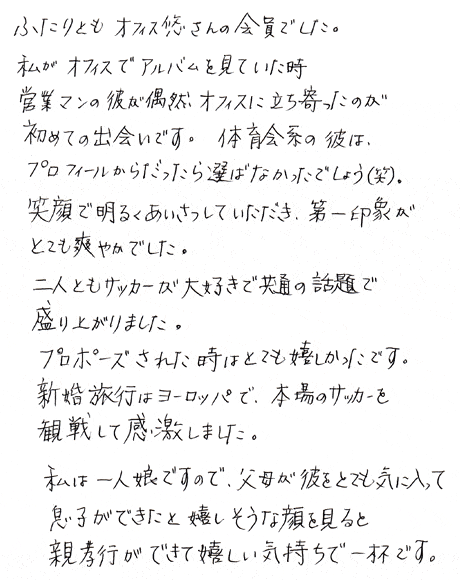 ふたりとも オフィス悠さんの会員でした。
私が オフィスで アルバムを見ていた時
営業マンの彼が偶然、オフィスに立ち寄ったのが
初めての出会いです。 体育会系の彼は、
プロフィールからだったら選ばなかったでしょう(笑)。
笑顔で明るくあいさつしていただき、第一印象が
とても爽やかでした。
二人ともサッカーが大好きで共通の話題で
盛り上がりました。
プロポーズされた時はとても嬉しかったです。
新婚旅行はヨーロッパで、本場のサッカーを
観戦して感激しました。
私は一人娘ですので、父母が彼をとても気に入って
息子ができたと嬉しそうな顔を見ると
親孝行ができて嬉しい気持ちで一杯です。